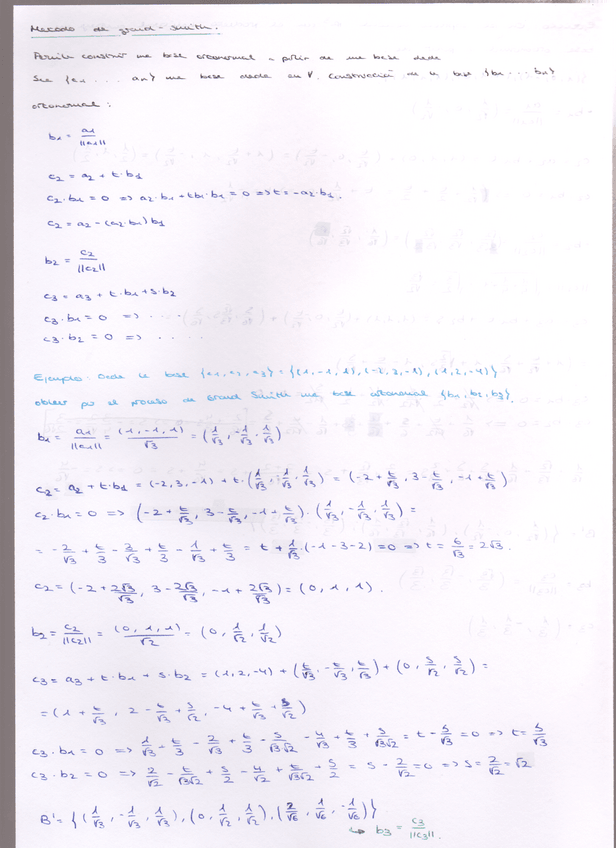 Metodo de graid-smith.
Permite construir una base ortonormal a partir de una base dada
Sea {a1 ... an} una base dada en V. Construcción de la base {b1 ... bn}
ortonormal:
b1 = a1/||a1||
c2 = a2 + t·b1
c2·b1 = 0 => a2·b1 + tb1·b1 = 0 => t = -a2·b1.
c2 = a2 - (a2·b1)b1
b2 = c2/||c2||
c3 = a3 + t·b1 + s·b2
c3·b1 = 0 => ....
c3·b2 = 0 => .....
Ejemplo: Dada la base {a1, a2, a3} = {(1,-1,1), (-2,3,-1), (1,2,-4)}
obtener por el proceso de Smith una base ortonormal {b1, b2, b3}.
b1 = a1/||a1|| = (1,-1,1)/√3 = (1/√3, -1/√3, 1/√3)
c2 = a2 + t·b1 = (-2,3,-1) + t·(1/√3, 1/√3, 1/√3) = (-2 + t/√3, 3 - t/√3, -1 + t/√3)
c2·b1 = 0 => (-2 + t/√3, 3 - t/√3, -1 + t/√3)·(1/√3, -1/√3, 1/√3) =
= -2/√3 + t/3 - 3/√3 + t/3 - 1/√3 + t/3 = t + 1/√3·(-1-3-2) = 0 => t = 6/√3 = 2√3.
c2 = (-2 + 2√3/√3, 3 - 2√3/√3, -1 + 2√3/√3) = (0,1,1).
b2 = c2/||c2|| = (0,1,1)/√2 = (0, 1/√2, 1/√2)
c3 = a3 + t·b1 + s·b2 = (1,2,-4) + (t/√3, -t/√3, t/√3) + (0, s/√2, s/√2) =
= (1 + t/√3, 2 - t/√3 + s/√2, -4 + t/√3 + s/√2)
c3·b1 = 0 => 1/√3 + t/3 - 2/√3 + t/3 - s/√3√2 - 4/√3 + t/3 + s/√3√2 = t - 5/√3 = 0 => t = 5/√3
c3·b2 = 0 => 2/√2 - t/√3√2 + s/2 - 4/√2 + t/√3√2 + s/2 = s - 2/√2 = 0 => s = 2/√2 = √2
B' = {(1/√3, -1/√3, 1/√3), (0, 1/√2, 1/√2), (2/√6, 1/√6, -1/√6)}
↳ b3 = c3/||c3||.